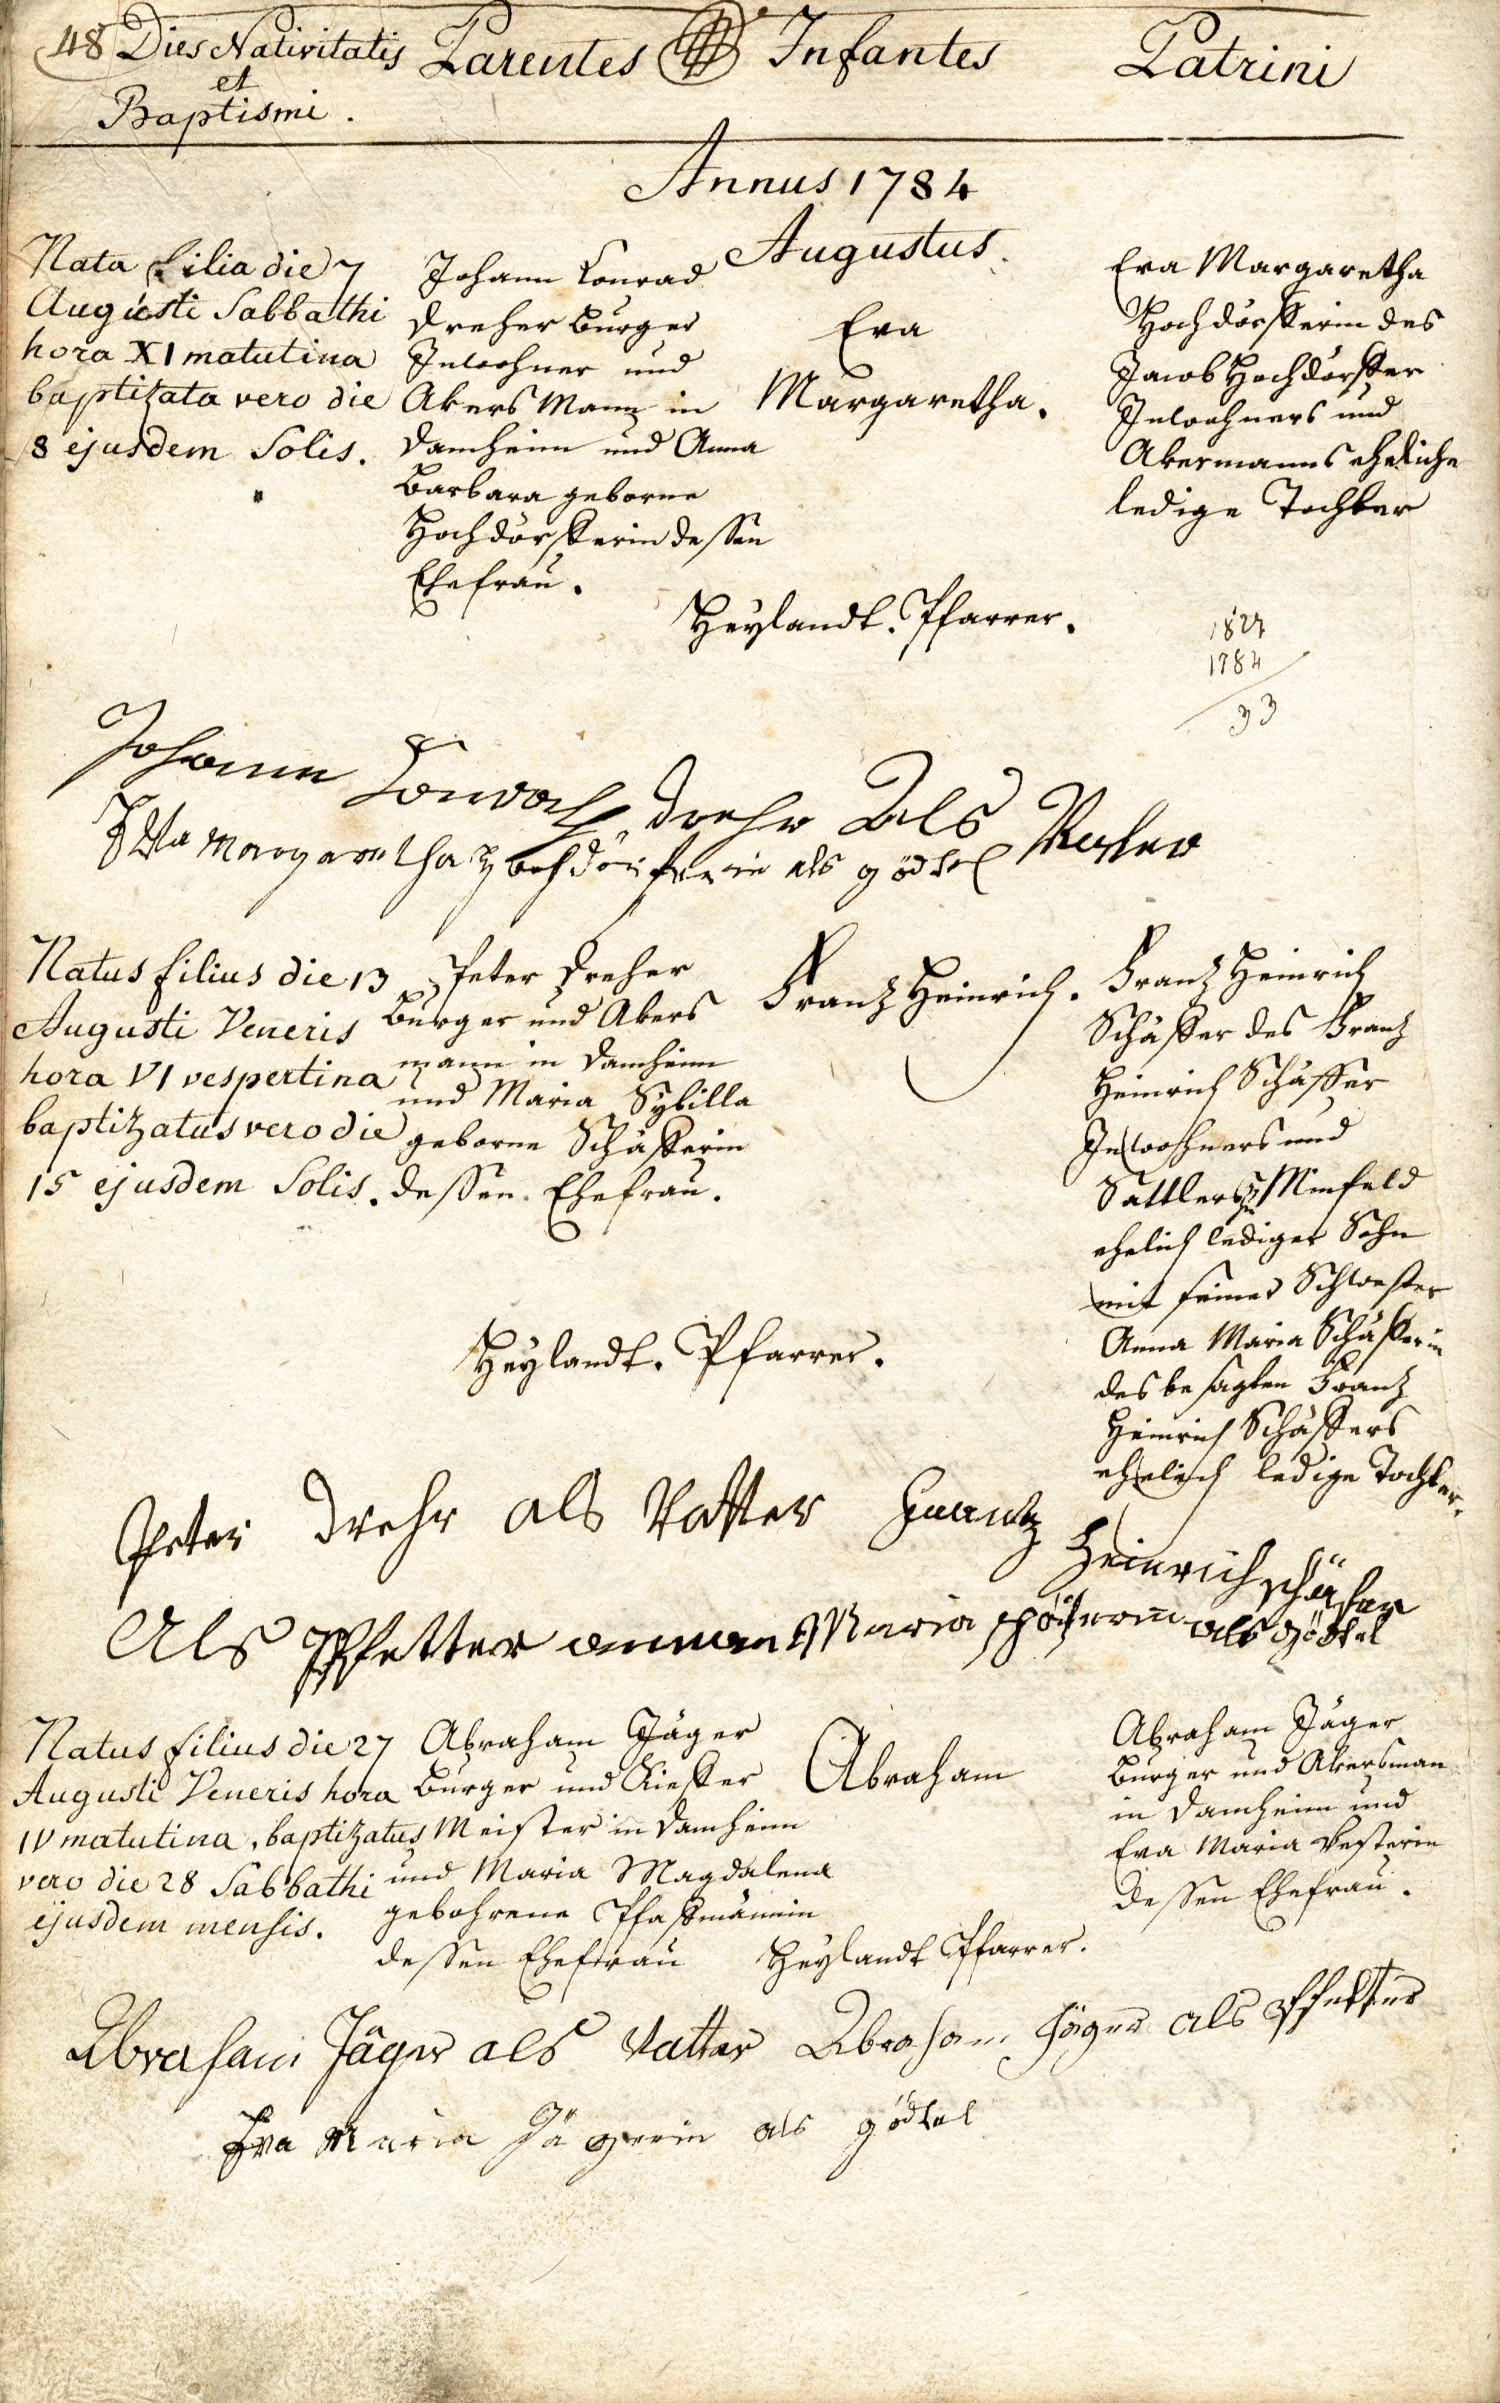 48 Dies Nativitatis
et
Baptismi.
Parentes
Infantes
Patrini
Annus 1784
Augustus.
Nata filia die 7
Augusti Sabbathi
hora XI matutina
baptizata vero die
8 ejusdem Solis.
Johann Conrad
Dreher Burger
Inwohner und
Akers Mann in
Damheim und Anna
Barbara geborne
Hochdörfferin dessen
Ehefrau.
Eva
Margaretha.
Eva Margaretha
Hochdörfferin des
Jacob Hochdörffer
Inwohners und
Akermanns eheliche
ledige Tochter
Heylandt. Pfarrer.
1827
1784
33
Johann Conrath Drehr Als Vatter
Eva Margaretha Hochdörferin als gödtel
Natus filius die 13
Augusti Veneris
hora VI vespertina
baptizatus vero die
15 ejusdem Solis.
Peter Dreher
Burger und Akers
mann in Damheim
und Maria Sybilla
geborne Schäfferin
dessen Ehefrau.
Franz Heinrich.
Franz Heinrich
Schäffer des Franz
Heinrich Schäffer
Inwohners und
Sattlers zu Minfeld
ehelich lediger Sohn
mit seiner Schwester
Anna Maria Schäfferin
des besagten Franz
Heinrich Schäffers
ehelich ledige Tochter.
Heylandt. Pfarrer.
Peter Drehr als Vatter Frantz
Heinrich schäfer
Als Pfetter Maria als Gödtel
Natus filius die 27
Augusti Veneris hora
IV matutina, baptizatus
vero die 28 Sabbathi
ejusdem mensis.
Abraham Jäger
Burger und Kieffer
Meister in Damheim
und Maria Magdalena
gebohrene Pfaffmännin
dessen Ehefrau
Abraham
Abraham Jäger
Burger und Akersman
in Damheim und
Eva Maria Vesterin
dessen Ehefrau.
Heylandt Pfarrer.
Abraham Jäger als Vatter Abraham Jäger als Pfetter
Eva Maria Jägerin als gödtel